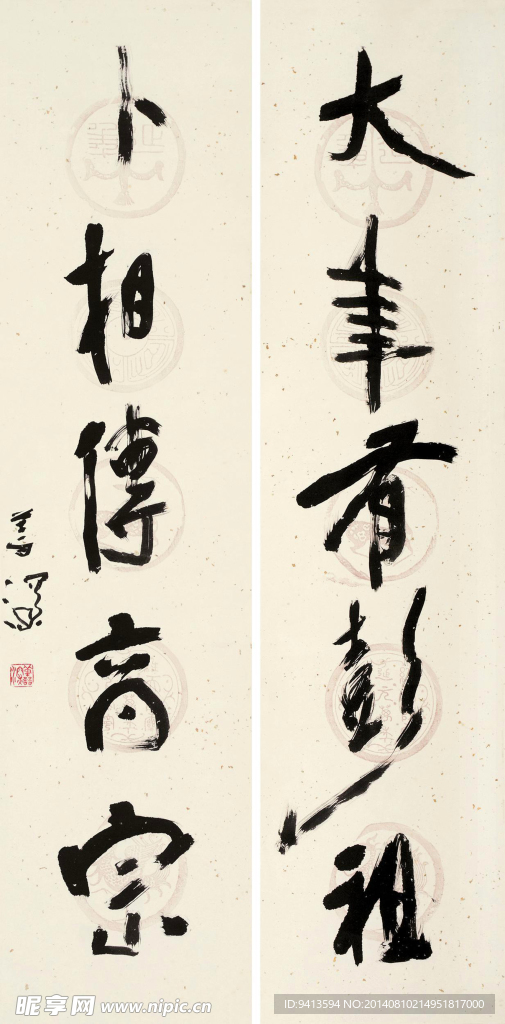 大年有彭祖
卜相傳高宗
昵享网 www.nipic.cn
ID:9413594 NO:20140810214951817000